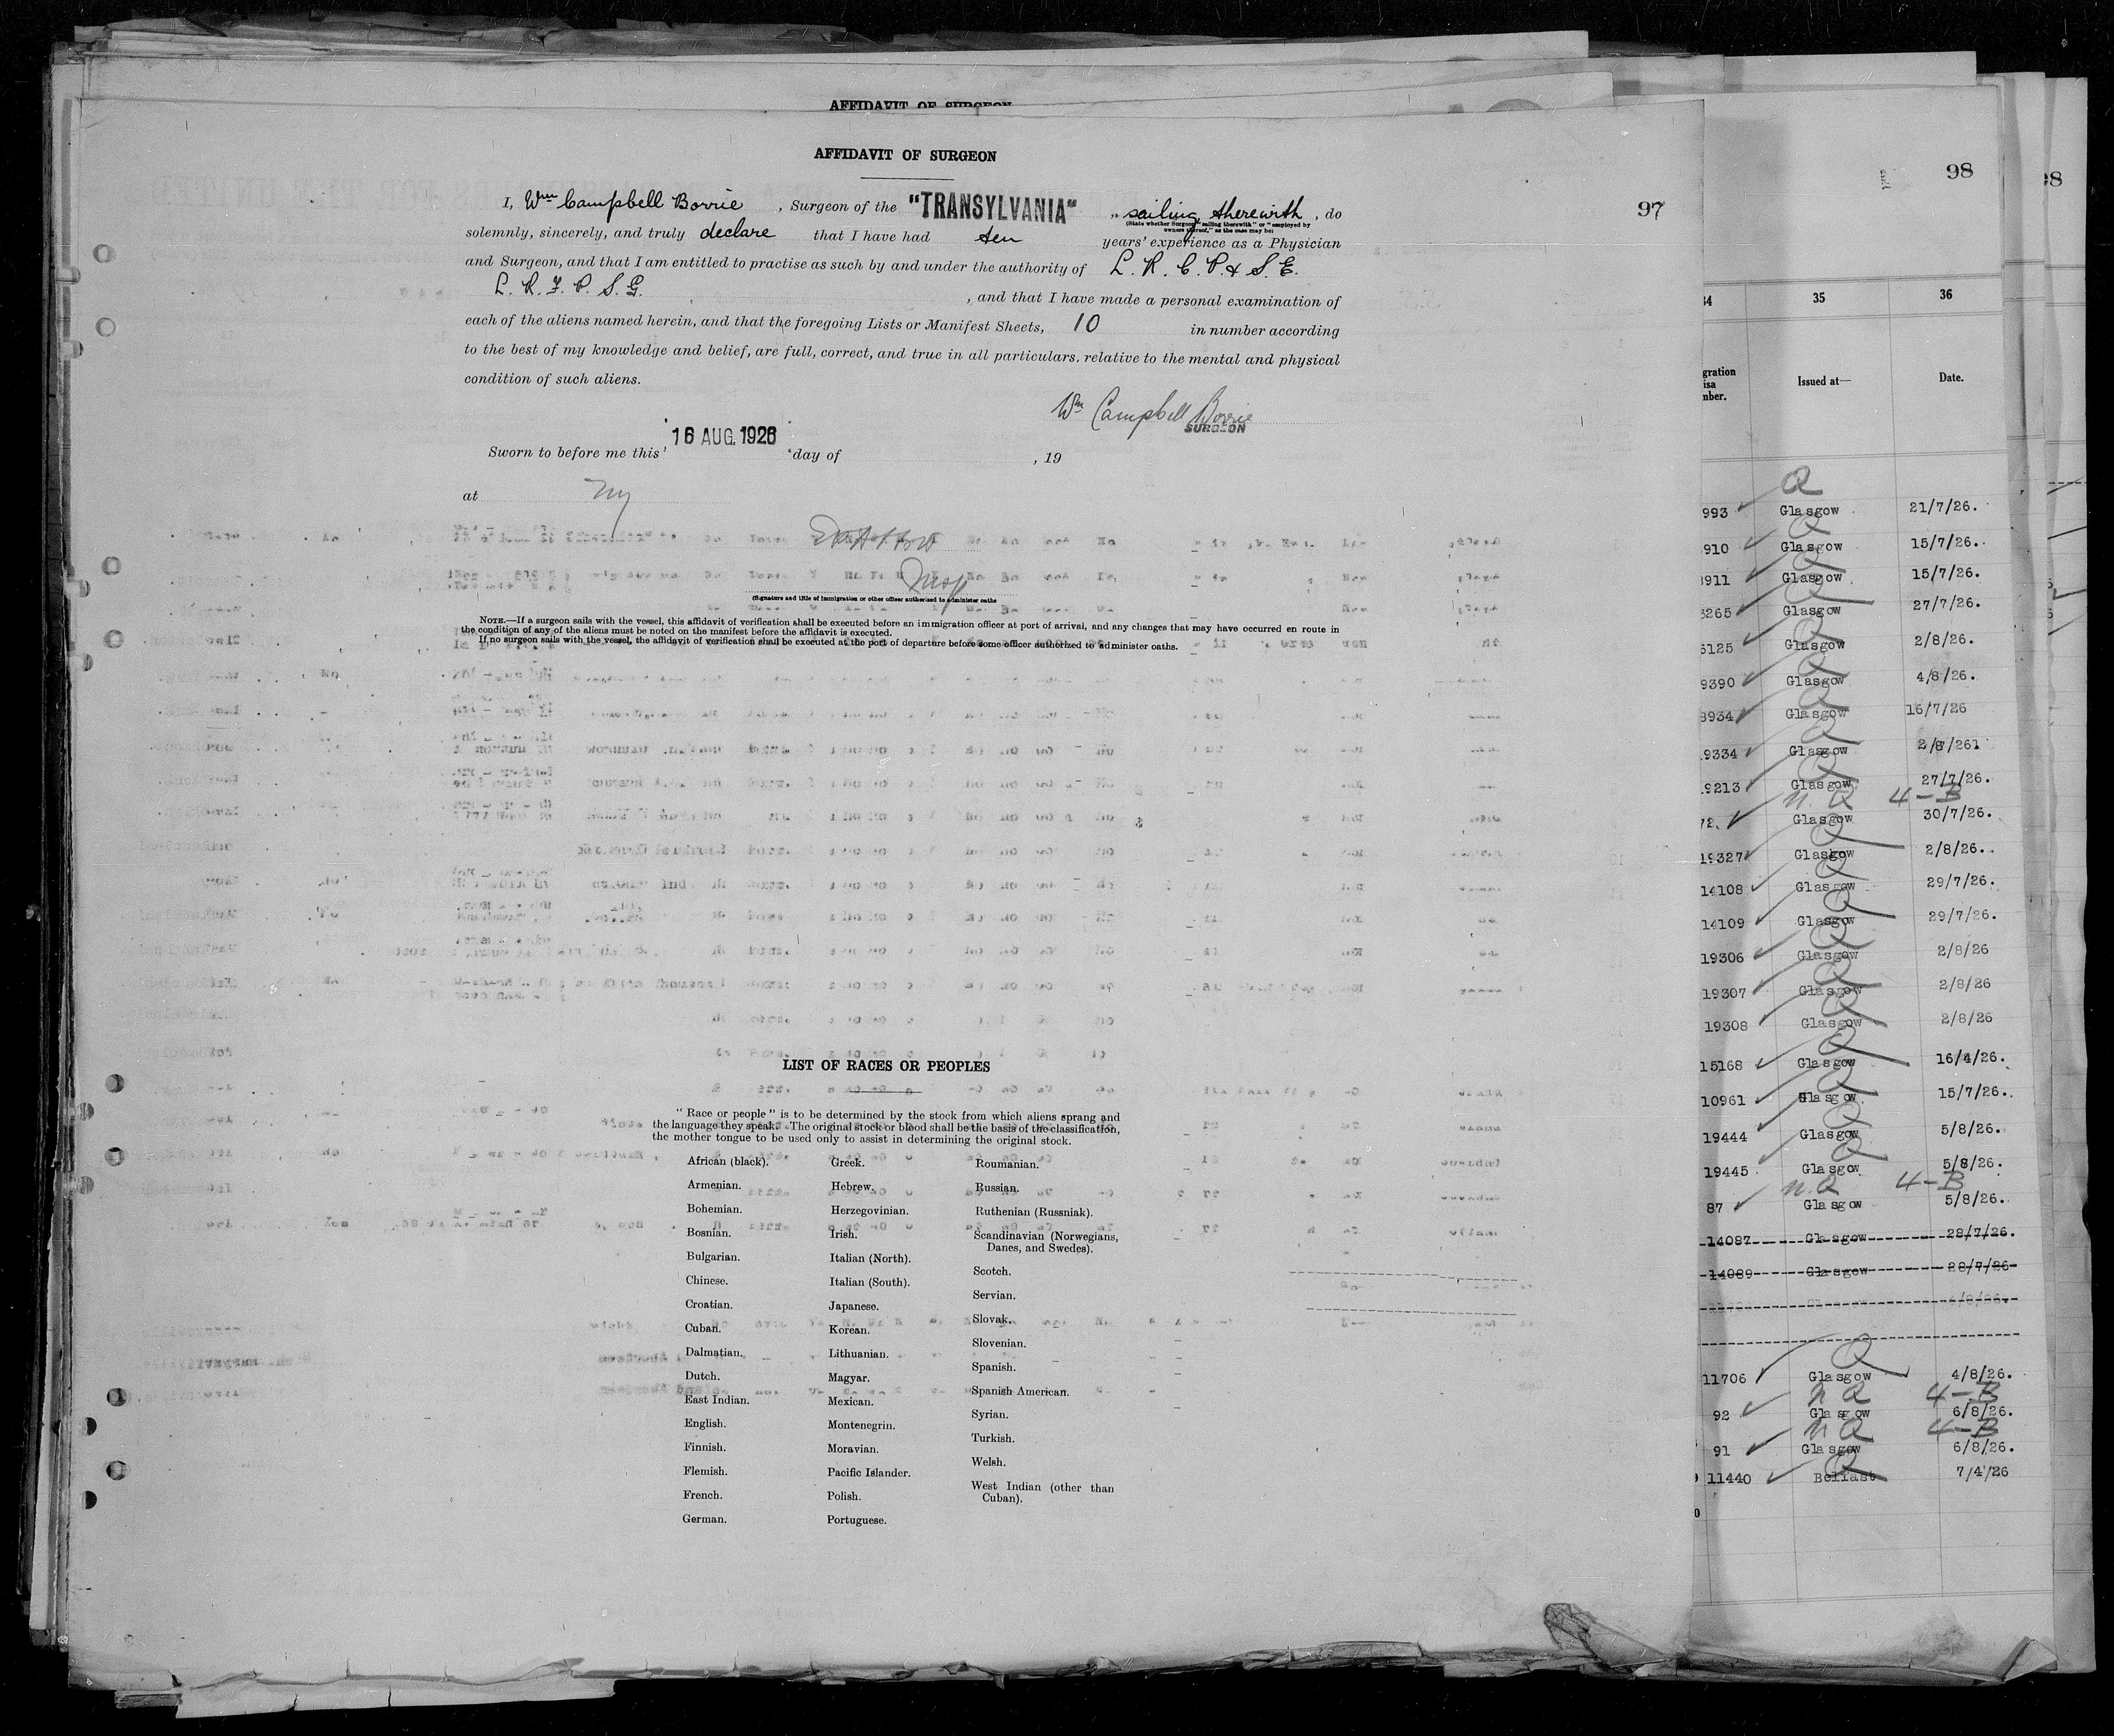 AFFIDAVIT OF SURGEON
AFFIDAVIT OF SURGEON
97
I, Wm Campbell Borrie, Surgeon of the "TRANSYLVANIA" " sailing therewith, do
(State whether Surgeon "sailing therewith" or "employed by
owners thereof," as the case may be)
solemnly, sincerely, and truly declare that I have had ten years' experience as a Physician
and Surgeon, and that I am entitled to practise as such by and under the authority of L. R. C. P. & S. E.
L. R. F. P. S. G. , and that I have made a personal examination of
each of the aliens named herein, and that the foregoing Lists or Manifest Sheets, 10 in number according
to the best of my knowledge and belief, are full, correct, and true in all particulars, relative to the mental and physical
condition of such aliens.
Wm Campbell Borrie
SURGEON
16 AUG. 1926
Sworn to before me this day of , 19
at NY
Insp
(Signature and title of immigration or other officer authorized to administer oaths
NOTE.—If a surgeon sails with the vessel, this affidavit of verification shall be executed before an immigration officer at port of arrival, and any changes that may have occurred en route in
the condition of any of the aliens must be noted on the manifest before the affidavit is executed.
If no surgeon sails with the vessel, the affidavit of verification shall be executed at the port of departure before some officer authorized to administer oaths.
LIST OF RACES OR PEOPLES
"Race or people" is to be determined by the stock from which aliens sprang and
the language they speak. The original stock or blood shall be the basis of the classification,
the mother tongue to be used only to assist in determining the original stock.
African (black).
Armenian.
Bohemian.
Bosnian.
Bulgarian.
Chinese.
Croatian.
Cuban.
Dalmatian.
Dutch.
East Indian.
English.
Finnish.
Flemish.
French.
German.
Greek.
Hebrew.
Herzegovinian.
Irish.
Italian (North).
Italian (South).
Japanese.
Korean.
Lithuanian.
Magyar.
Mexican.
Montenegrin.
Moravian.
Pacific Islander.
Polish.
Portuguese.
Roumanian.
Russian.
Ruthenian (Russniak).
Scandinavian (Norwegians,
Danes, and Swedes).
Scotch.
Servian.
Slovak.
Slovenian.
Spanish.
Spanish American.
Syrian.
Turkish.
Welsh.
West Indian (other than
Cuban).
98
34 35 36
gration
isa
nber.
Issued at—
Date.
Q
993 Glasgow 21/7/26.
Q
910 Glasgow 15/7/26.
Q
911 Glasgow 15/7/26.
Q
265 Glasgow 27/7/26.
Q
6125 Glasgow 2/8/26.
Q
9390 Glasgow 4/8/26.
Q
8934 Glasgow 16/7/26
Q
9334 Glasgow 2/8/261
Q
9213 Glasgow 27/7/26.
N. Q 4-B
72. Glasgow 30/7/26.
Q
19327 Glasgow 2/8/26.
Q
14108 Glasgow 29/7/26.
Q
14109 Glasgow 29/7/26.
Q
19306 Glasgow 2/8/26
Q
19307 Glasgow 2/8/26
Q
19308 Glasgow 2/8/26
Q
15168 Glasgow 16/4/26.
Q
10961 Glasgow 15/7/26.
Q
19444 Glasgow 5/8/26.
Q
19445 Glasgow 5/8/26.
N.Q 4-B
87 Glasgow 5/8/26.
14087 Glasgow 28/7/26.
14089 Glasgow 28/7/26
Q
11706 Glasgow 4/8/26.
N Q 4-B
92 Glasgow 6/8/26.
N Q 4-B
91 Glasgow 6/8/26.
Q
11440 Belfast 7/4/26